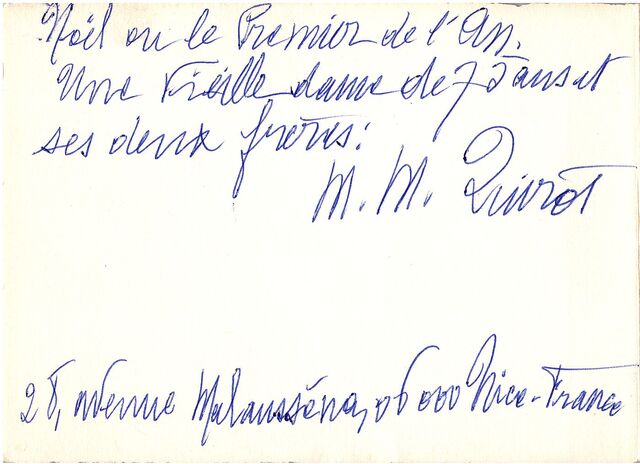 Noël ou le Premier de l'An.
Une vieille dame de 75 ans et
ses deux frères:
M. M. Quirot
28, avenue Malausséna, 06000 Nice-France